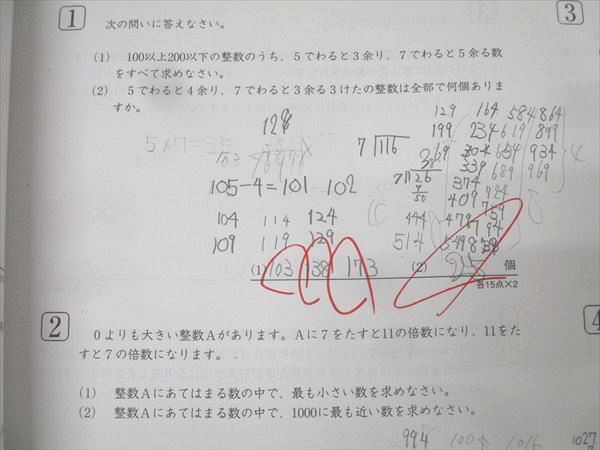 1
次の問いに答えなさい。
3
(1) 100以上200以下の整数のうち、5でわると3余り、7でわると5余る数
をすべて求めなさい。
(2) 5でわると4余り、7でわると3余る3けたの整数は全部で何個ありま
すか。
129 164 584 864
128 199 234 619 899
5×7=35 7 116 69 304 654 934
103 339 689 969
105-4=101 102 7 126 374 724
409
104 114 124 444 479 794
109 119 129 514 549
(1) 103 138 173 (2) 25 個
各15点×2
2
0よりも大きい整数Aがあります。Aに7をたすと11の倍数になり、11をた
すと7の倍数になります。
4
(1) 整数Aにあてはまる数の中で、最も小さい数を求めなさい。
(2) 整数Aにあてはまる数の中で、1000に最も近い数を求めなさい。
994 1016 1027